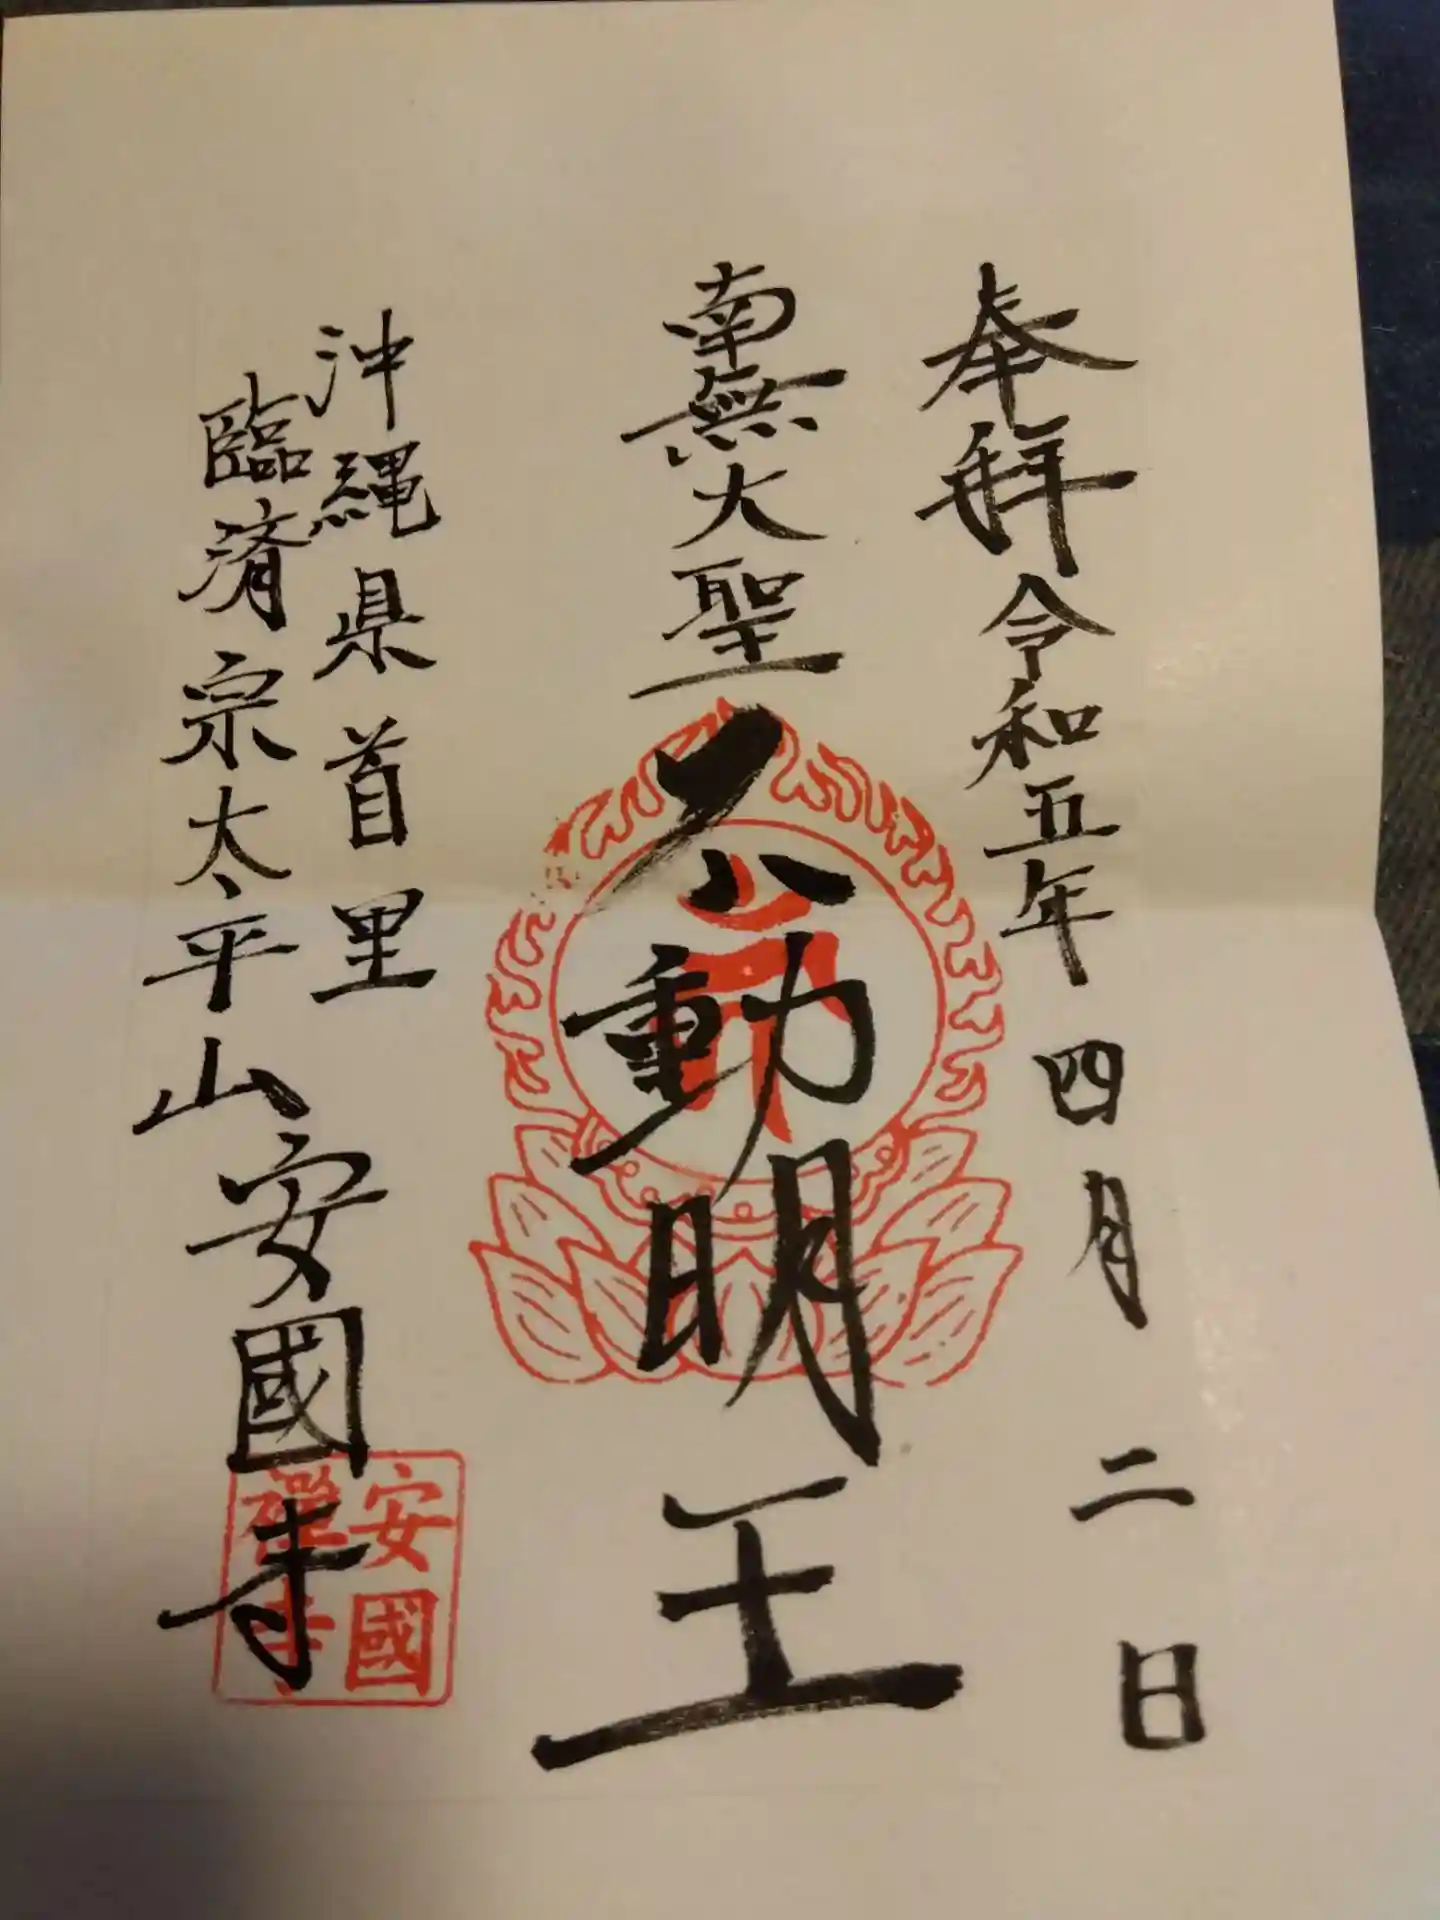 奉拜 令和五年 四月 二日
南無大聖不動明王
沖縄県首里
臨済宗太平山安國寺
安國
禅寺